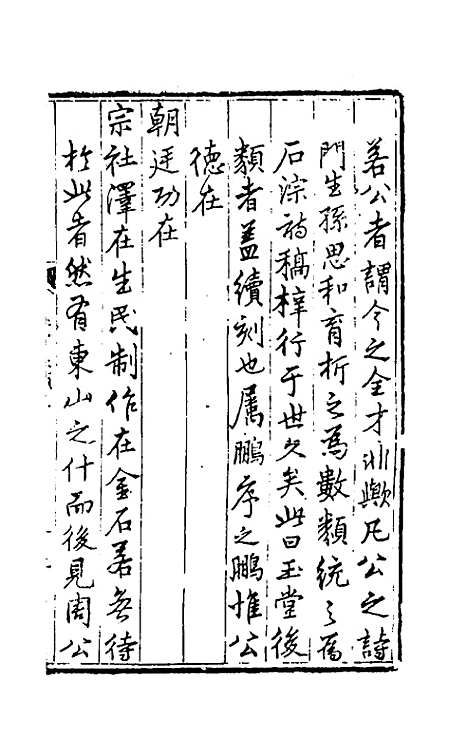 若公者謂今之全才非歟凡公之詩
門生孫思和育析之為數類統之為
石淙詩稿梓行于世久矣此曰玉堂後
類者蓋續刻也属鵬序之鵬惟公
德在
朝廷功在
宗社澤在生民制作在金石若無待
於此者然有東山之什而後見周公